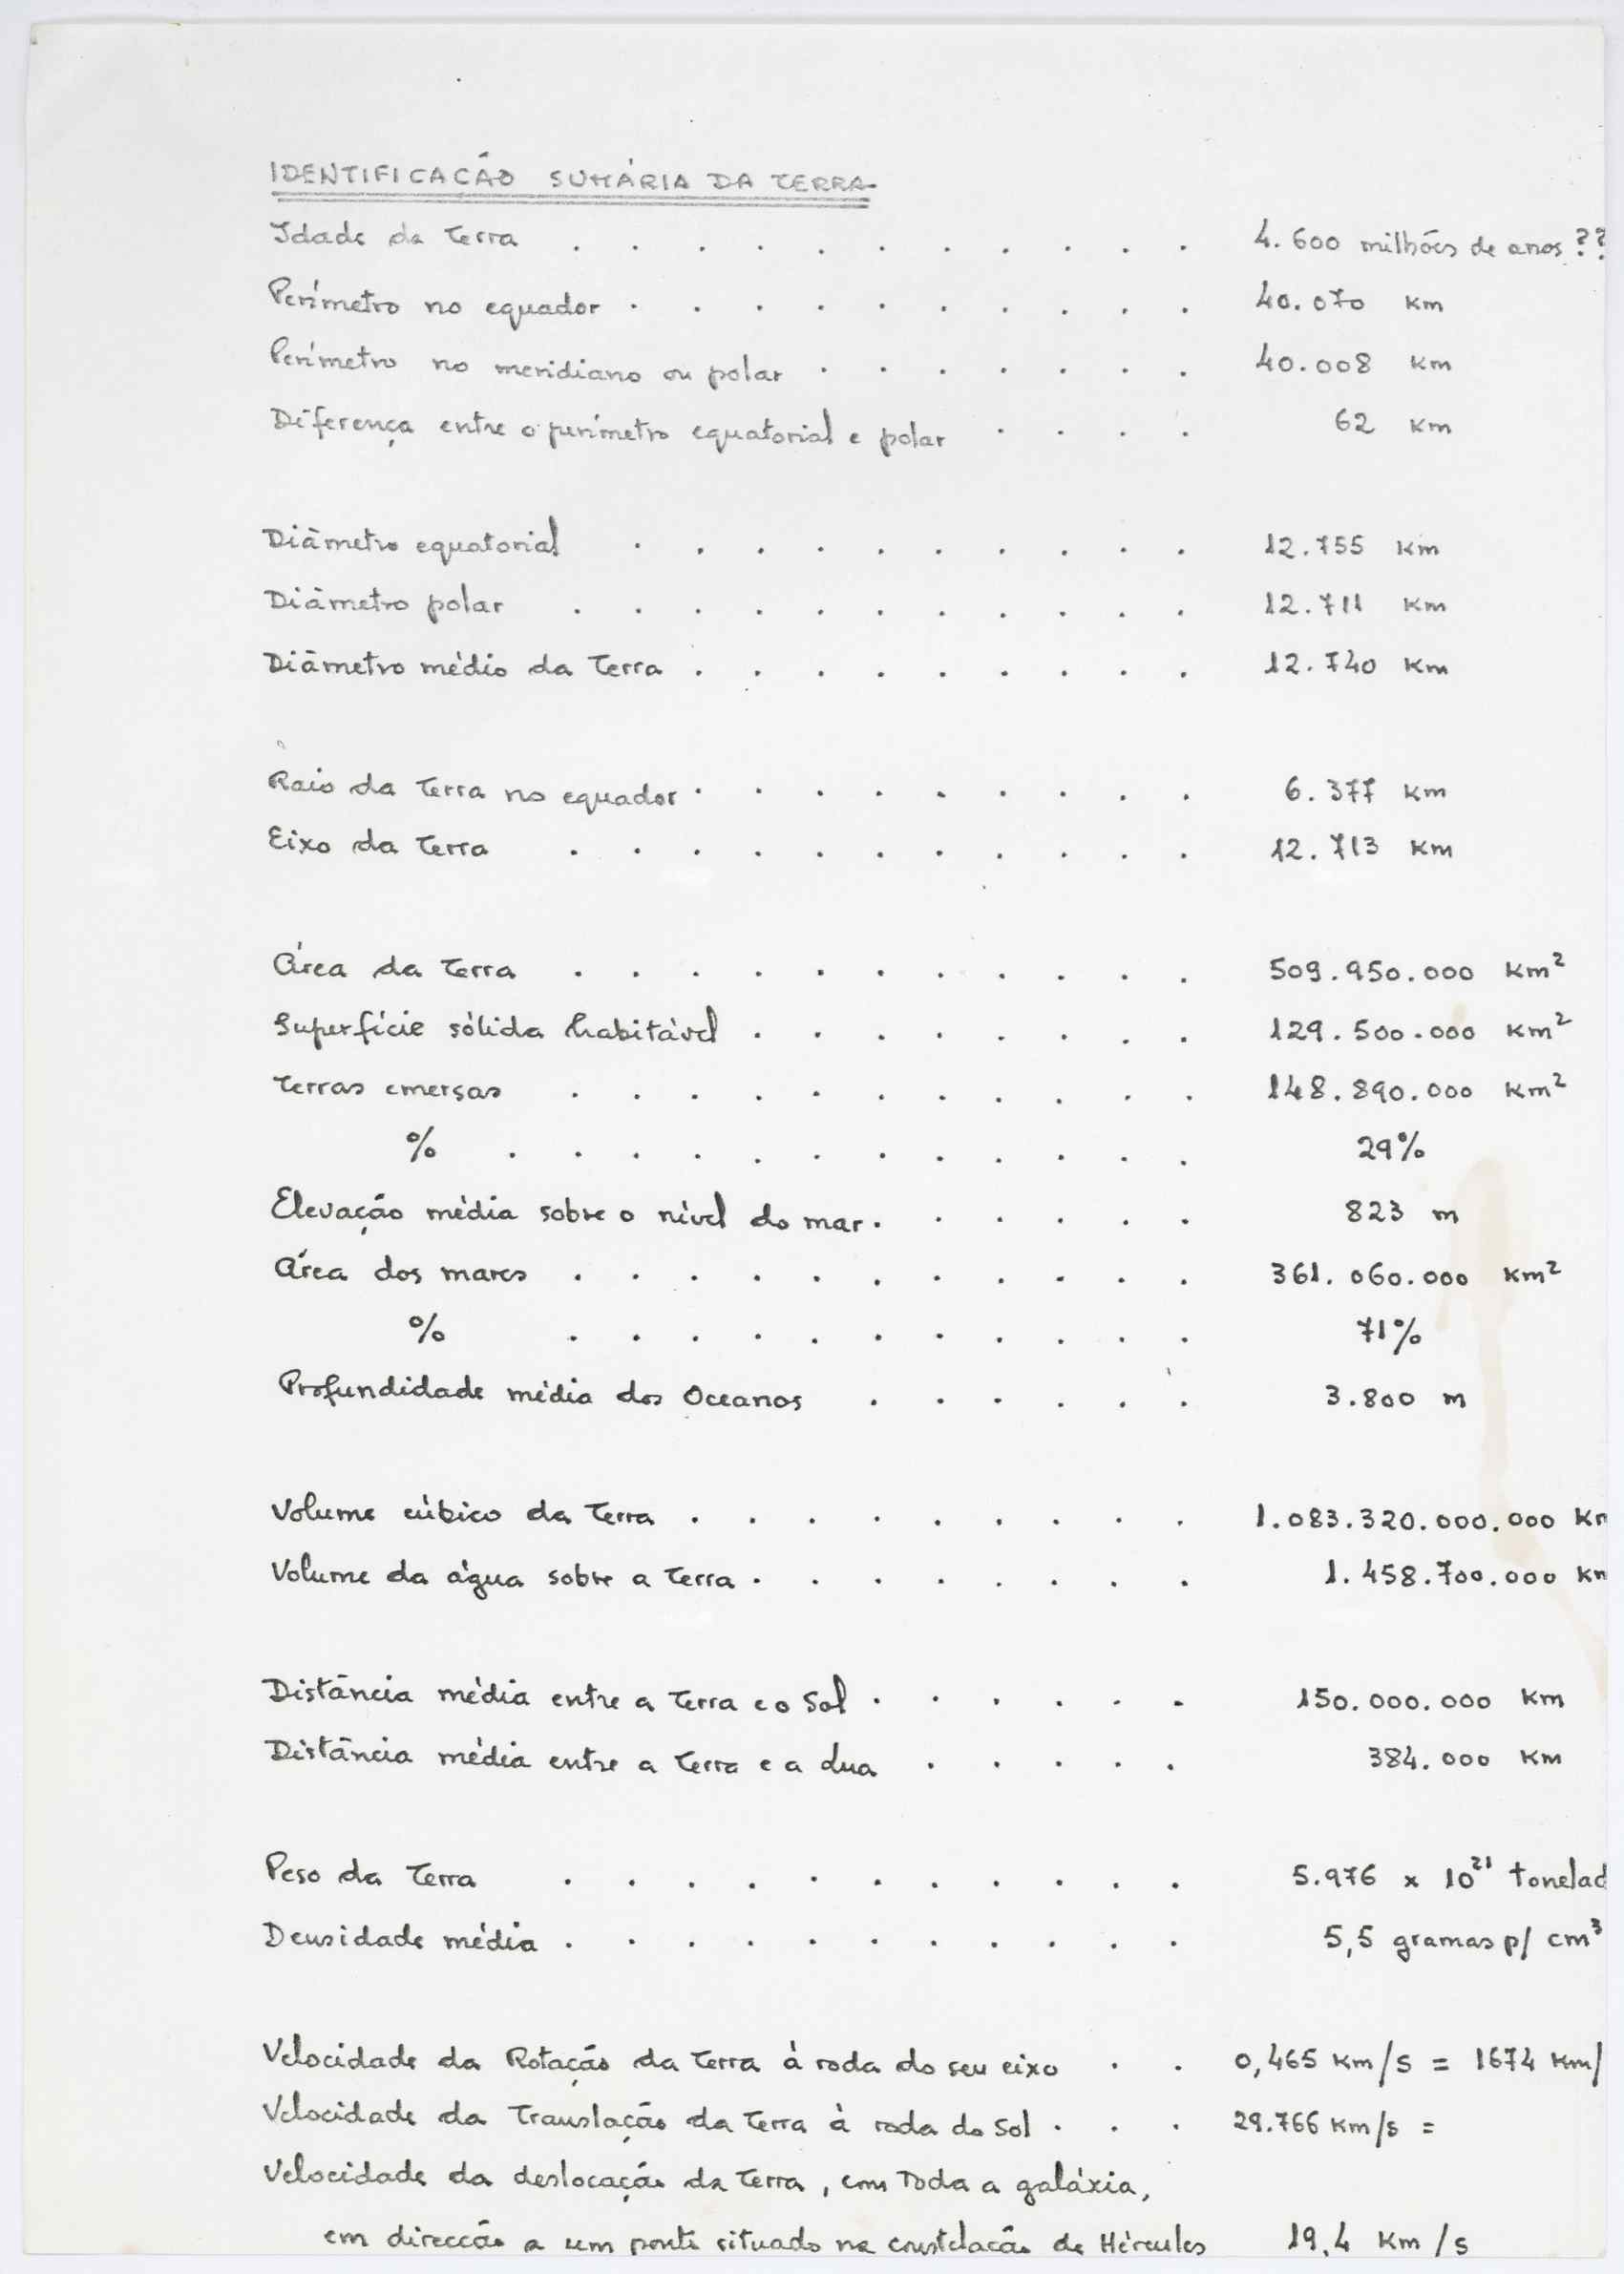 IDENTIFICAÇÃO SUMÁRIA DA TERRA
Idade da Terra . . . . . . . . . . . 4.600 milhões de anos ??
Perímetro no equador . . . . . . . . . . 40.070 Km
Perímetro no meridiano ou polar . . . . . . . 40.008 Km
Diferença entre o perímetro equatorial e polar . . . . 62 Km
Diâmetro equatorial . . . . . . . . . . 12.755 Km
Diâmetro polar . . . . . . . . . . . 12.711 Km
Diâmetro médio da Terra . . . . . . . . . 12.740 Km
Raio da Terra no equador . . . . . . . . . 6.377 Km
Eixo da Terra . . . . . . . . . . . 12.713 Km
Área da Terra . . . . . . . . . . . 509.950.000 Km²
Superfície sólida habitável . . . . . . . . 129.500.000 Km²
Terras emersas . . . . . . . . . . . 148.890.000 Km²
% . . . . . . . . . . . . 29%
Elevação média sobre o nível do mar . . . . . . 823 m
Área dos mares . . . . . . . . . . . 361.060.000 Km²
% . . . . . . . . . . . 71%
Profundidade média dos Oceanos . . . . . . 3.800 m
Volume cúbico da Terra . . . . . . . . . 1.083.320.000.000 Km
Volume da água sobre a Terra . . . . . . . . 1.458.700.000 Km
Distância média entre a Terra e o Sol . . . . . . 150.000.000 Km
Distância média entre a Terra e a Lua . . . . . 384.000 Km
Peso da Terra . . . . . . . . . . . 5.976 x 10²¹ tonelad
Densidade média . . . . . . . . . . . 5,5 gramas p/ cm³
Velocidade da Rotação da Terra à roda do seu eixo . . 0,465 Km/s = 1674 Km/
Velocidade da Translação da Terra à roda do Sol . . . 29.766 Km/s =
Velocidade da deslocação da Terra, com Toda a galáxia,
em direcção a um ponto situado na constelação de Hércules 19,4 Km/s